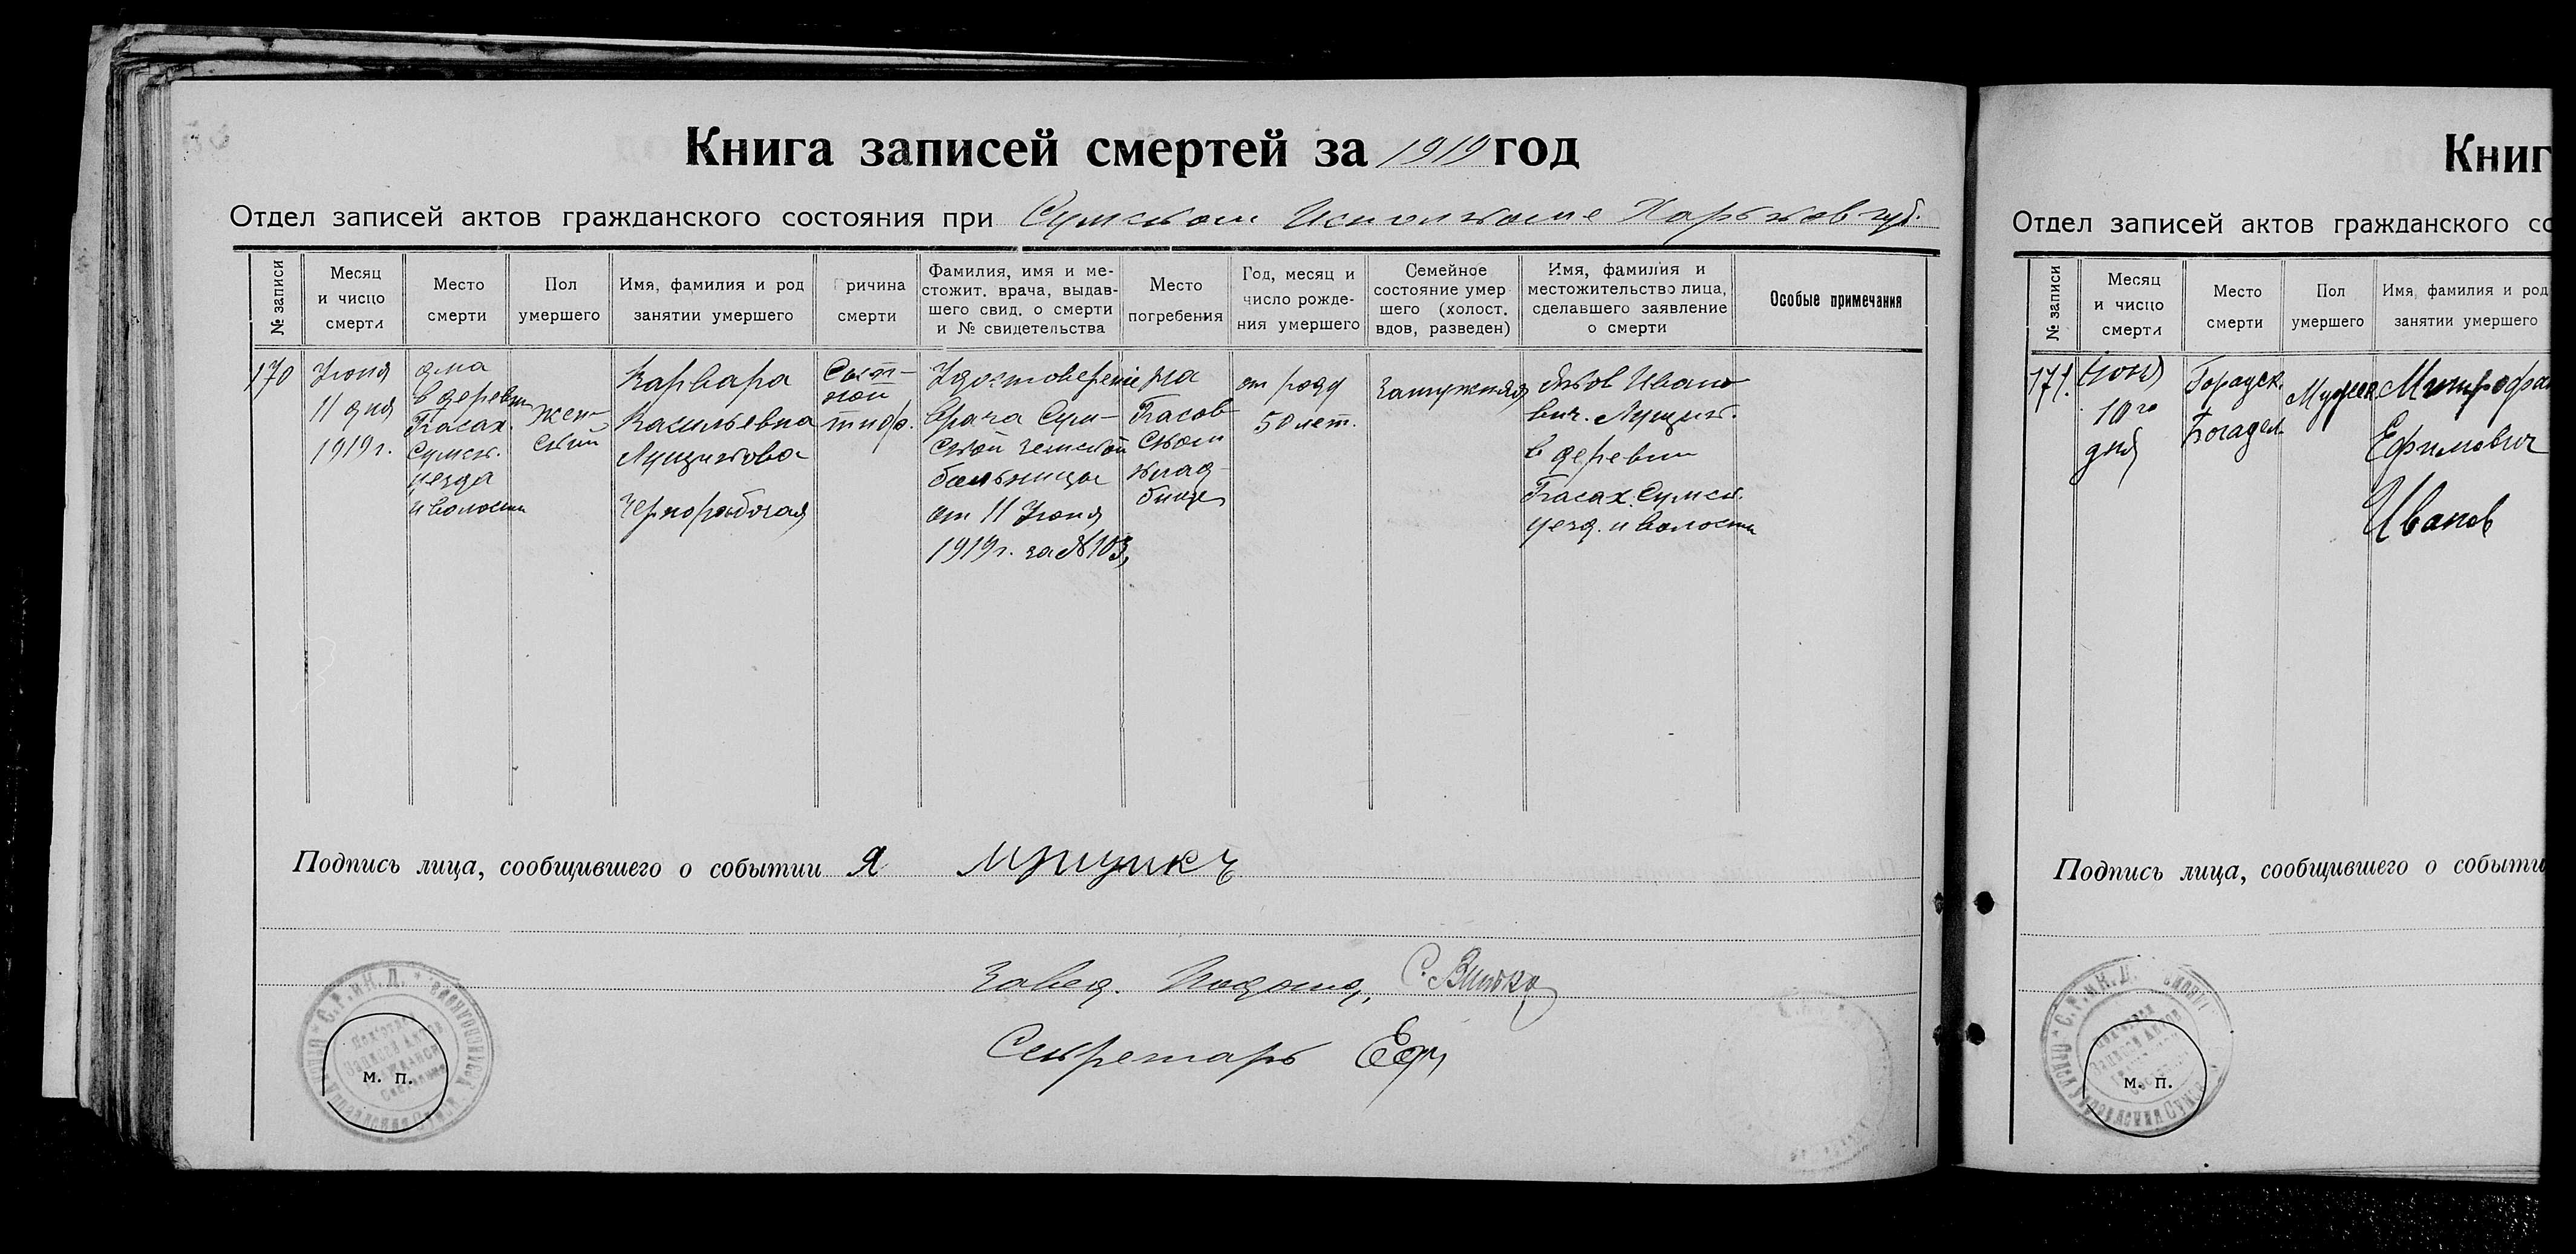 Книга записей смертей за 1919 год
Отдел записей актов гражданского состояния при Сумском Исполкоме Харьков губ.
№ записи
Месяц
и число
смерти
Место
смерти
Пол
умершего
Имя, фамилия и род
занятии умершего
Причина
смерти
Фамилия, имя и ме-
стожит. врача, выдав-
шего свид. о смерти
и № свидетельства
Место
погребения
Год, месяц и
число рожде-
ния умершего
Семейное
состояние умер
шего (холост.
вдов, разведен)
Имя, фамилия и
местожительство лица,
сделавшего заявление
о смерти
Особые примечания
170
Июня
11 дня
1919 г.
дма
в деревн
Басах.
Сумск.
уезда
и волости
Жен-
ский
Варвара
Васильевна
Лущикова
Чернорабочая
Сып-
ной
тиф.
Удостоверение
врача Сум-
ской земской
больницы
от 11 Июня
1919 г. за № 103,
На
Басов
ском
клад
бище
от роду
50 лет.
Замужняя
Яков Ивано
вич. Лущик.
в деревни
Басах. Сумск.
уезд. и волости
Подпись лица, сообщившего о событии Я
Завед. Подотд,
Секретарь
м. п.
Книг
Отдел записей актов гражданского со
№ записи
Месяц
и число
смерти
Место
смерти
Пол
умершего
Имя, фамилия и род
занятии умершего
171.
Июня
10го
дня
Городск.
Богадел.
Мужск
Митрофан
Ефимович
Иванов
Подпись лица, сообщившего о событи
м. п.